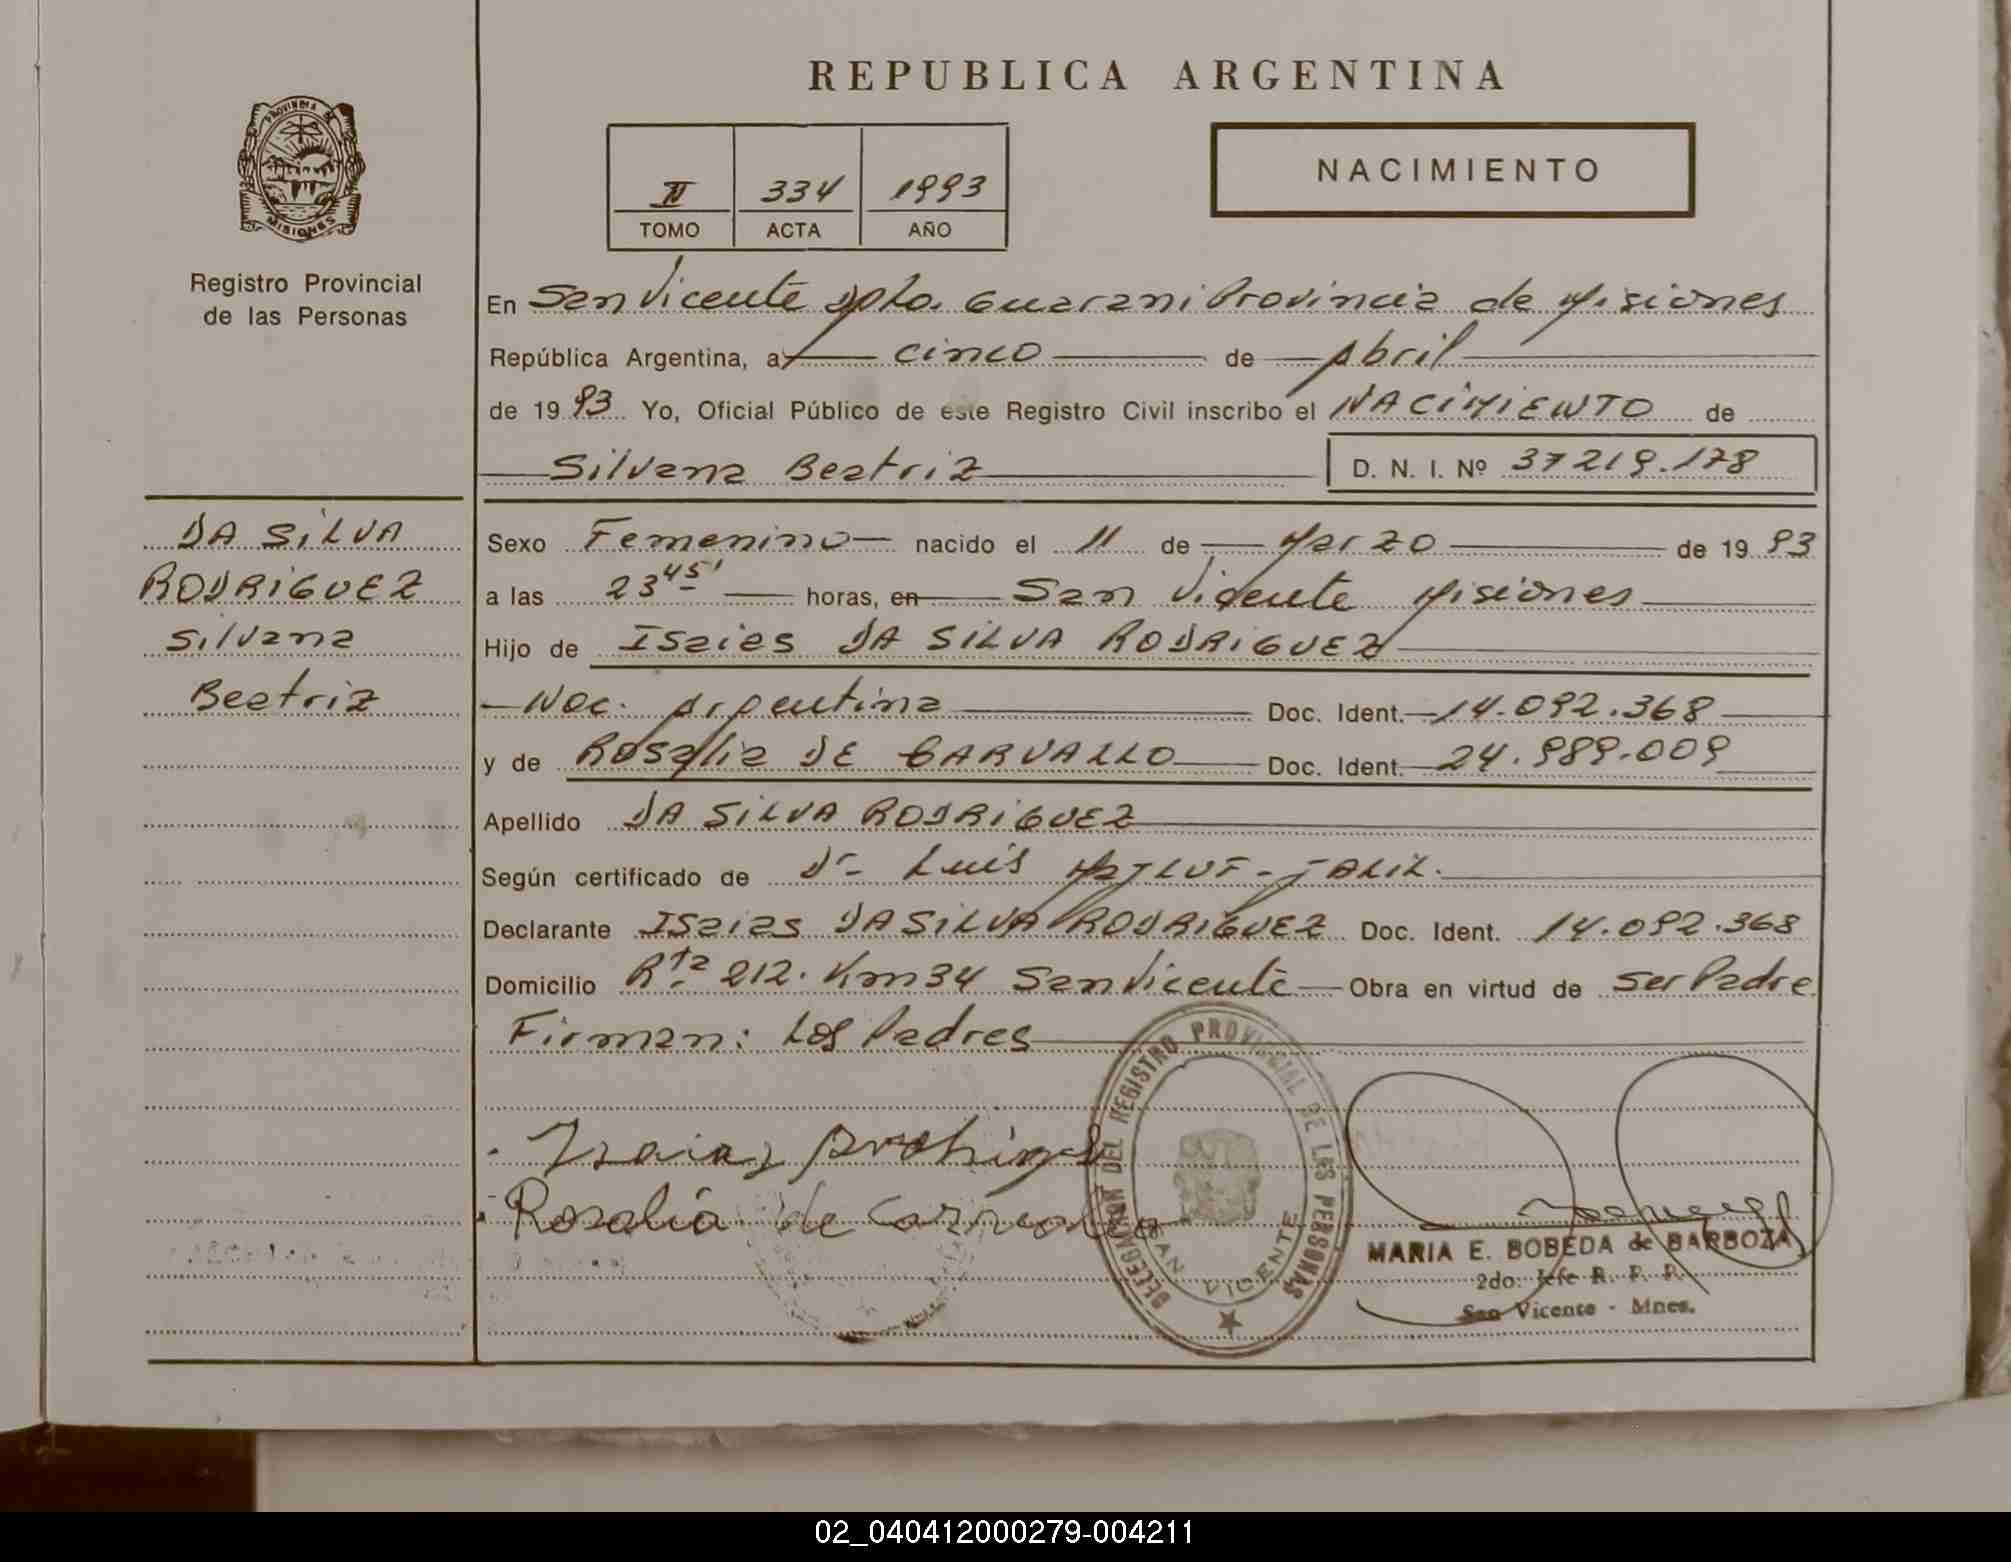 REPUBLICA ARGENTINA
PROVINCIA DE
MISIONES
Registro Provincial
de las Personas
II 334 1993
TOMO ACTA AÑO
NACIMIENTO
En San Vicente Dpto. Guarani Provincia de Misiones
República Argentina, a cinco de Abril
de 1993 Yo, Oficial Público de este Registro Civil inscribo el NACIMIENTO de
Silvana Beatriz D. N. I. Nº 37219.178
DA SILVA
RODRIGUEZ
Silvana
Beatriz
Sexo Femenino nacido el 11 de Marzo de 1993
a las 23 45' horas, en San Vicente Misiones
Hijo de Isaias DA SILVA RODRIGUEZ
Nac. Argentina Doc. Ident. 14.092.368
y de Rosalia DE CARVALLO Doc. Ident. 24.989.009
Apellido DA SILVA RODRIGUEZ
Según certificado de Dr Luis JALIL.
Declarante Isaias DA SILVA RODRIGUEZ Doc. Ident. 14.092.368
Domicilio Rta 212. Km 34 San Vicente Obra en virtud de Ser Padre
Firman: Los Padres
Rosalia de
DELEGACION DEL REGISTRO PROVINCIAL DE LAS PERSONAS
SAN VICENTE
MARIA E. BOBEDA de BARBOZA
2do. Jefe R. P. P.
San Vicente - Mnes.
02_040412000279-004211